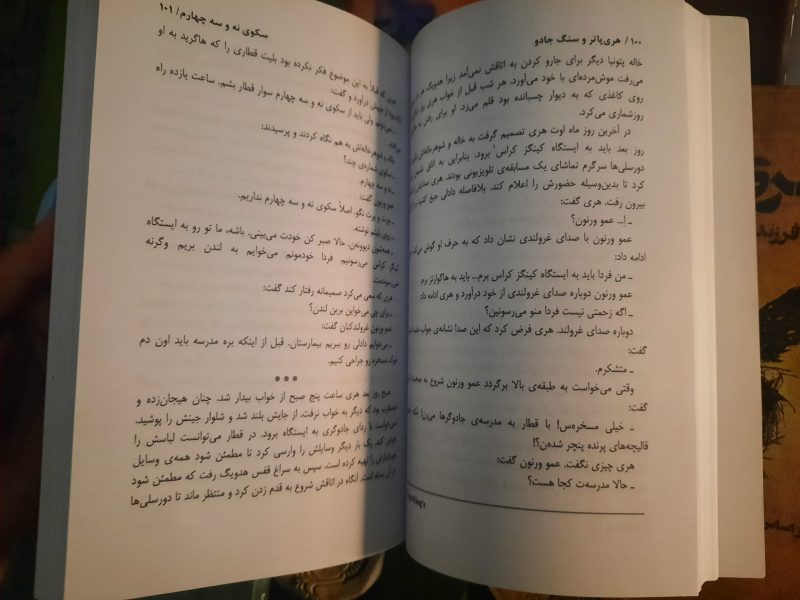 ۱۰۰ / هری‌پاتر و سنگ جادو
خاله پتونیا دیگر برای جارو کردن به اتاقش نمی‌آمد زیرا هدویگ هر
می‌رفت موش‌مرده‌ای با خود می‌آورد. هر شب قبل از خواب هری
روی کاغذی که به دیوار چسبانده بود قلم می‌زد. او برای رفتن به
روزشماری می‌کرد.
در آخرین روز ماه اوت هری تصمیم گرفت به خاله و شوهرخاله‌اش
روز بعد باید به ایستگاه کینگز کراس۱ برود. بنابراین به اتاق
دورسلی‌ها سرگرم تماشای یک مسابقه‌ی تلویزیونی بودند. هری
کرد تا بدین‌وسیله حضورش را اعلام کند. بلافاصله دادلی جیغ
بیرون رفت. هری گفت:
ـ اِ... عمو ورنون؟
عمو ورنون با صدای غرولندی نشان داد که به حرف او گوش می‌کند
ادامه داد:
ـ من فردا باید به ایستگاه کینگز کراس برم... باید به هاگوارتز برم
عمو ورنون دوباره صدای غرولندی از خود درآورد و هری ادامه داد
ـ اگه زحمتی نیست فردا منو می‌رسونین؟
دوباره صدای غرولند. هری فرض کرد که این صدا نشانه‌ی جواب
گفت:
ـ متشکرم.
وقتی می‌خواست به طبقه‌ی بالا برگردد عمو ورنون شروع به
گفت:
ـ خیلی مسخره‌س! با قطار به مدرسه‌ی جادوگرها می‌رن!
قالیچه‌های پرنده پنچر شده‌ن؟!
هری چیزی نگفت. عمو ورنون گفت:
ـ حالا مدرسه‌ت کجا هست؟
King's
سکوی نه و سه چهارم / ۱۰۱
هری که قبلاً به این موضوع فکر نکرده بود بلیت قطاری را که هاگرید به او
درآورد و گفت:
ولی باید از سکوی نه و سه چهارم سوار قطار بشم. ساعت یازده راه
خاله و شوهرخاله‌اش به هم نگاه کردند و پرسیدند:
ـ سکوی شماره‌ی چند؟
ـ نه و سه چهارم.
عمو ورنون گفت:
ـ چرت و پرت نگو. اصلاً سکوی نه و سه چهارم نداریم.
ـ روی بلیتم نوشته.
دیوونه‌ن. حالا صبر کن خودت می‌بینی. باشه، ما تو رو به ایستگاه
کینگز کراس می‌رسونیم. فردا خودمونم می‌خوایم به لندن بریم وگرنه
هری که سعی می‌کرد صمیمانه رفتار کند گفت:
ـ برای چی می‌خواین برین لندن؟
عمو ورنون غرولندکنان گفت:
ـ می‌خوایم دادلی رو ببریم بیمارستان. قبل از اینکه بره مدرسه باید اون دم
خوک مسخره‌رو جراحی کنیم.
***
صبح روز بعد هری ساعت پنج صبح از خواب بیدار شد. چنان هیجان‌زده و
مضطرب بود که دیگر به خواب نرفت. از جایش بلند شد و شلوار جینش را پوشید.
ردای جادوگری به ایستگاه برود. در قطار می‌توانست لباسش را
کند. یک بار دیگر وسایلش را وارسی کرد تا مطمئن شود همه‌ی وسایل
را تهیه کرده است. سپس به سراغ قفس هدویگ رفت که مطمئن شود
در آن بسته است. آنگاه در اتاقش شروع به قدم زدن کرد و منتظر ماند تا دورسلی‌ها